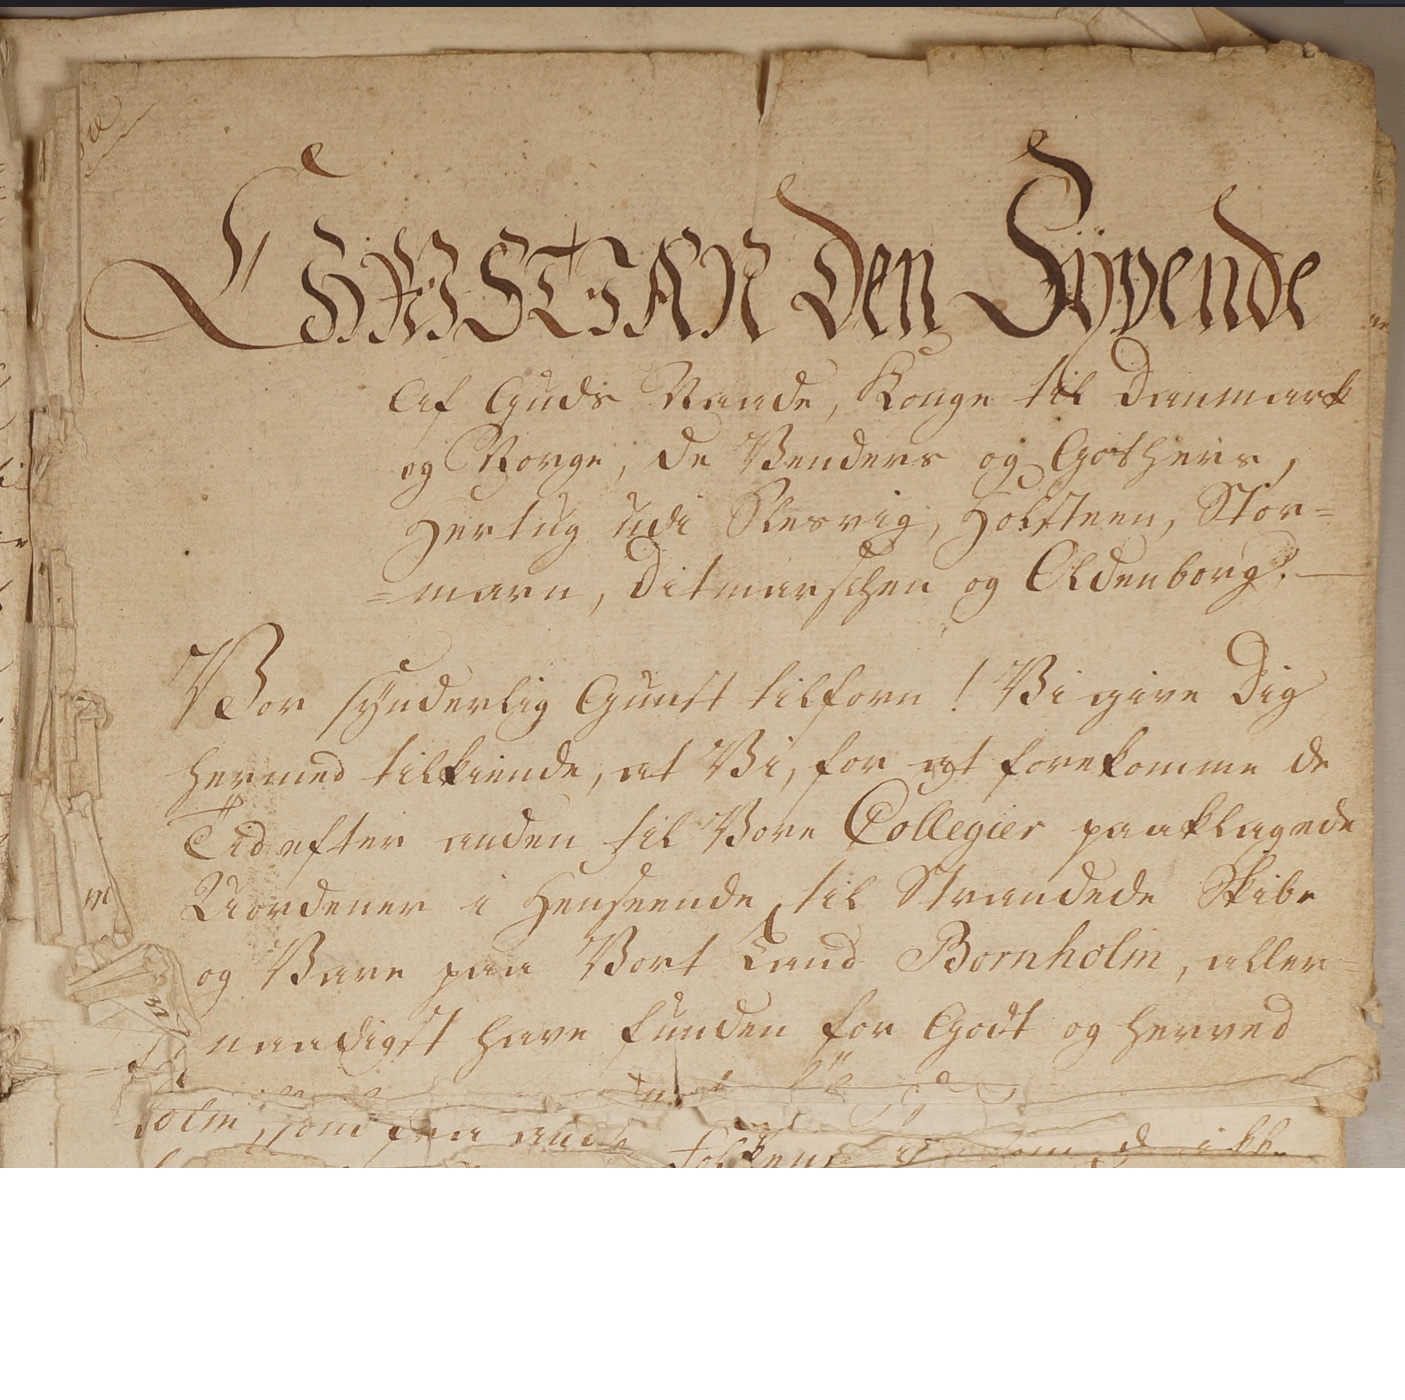 CHRISTIAN den Syvende
Af Guds Naade, Konge til Danmark
og Norge, de Venders og Gothers,
Hertug udi Slesvig, Holsteen, Stor=
=marn, Ditmarschen og Oldenborg.
Vor synderlig Gunst tilforn! Vi give Dig
hermed tilkiende, at Vi, for at forekomme de
Tid efter anden til Vore Collegier paaklagede
Uordener i Henseende til Strandede Skibe
og Vare paa Vort Land Bornholm, aller=
naadigst have funden for Godt og herved
holm, som paa andre
ikke